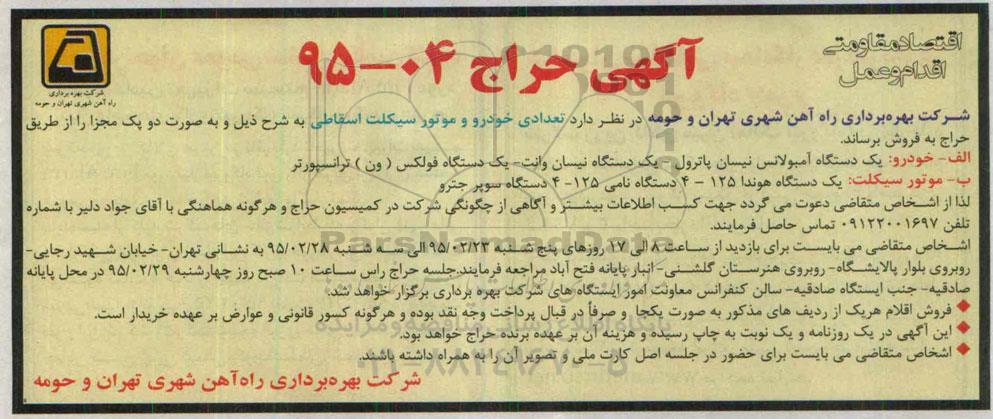 اقتصاد مقاومتی
اقدام و عمل
آگهی حراج ۰۴–۹۵
شرکت بهره برداری
راه آهن شهری تهران و حومه
شرکت بهره‌برداری راه آهن شهری تهران و حومه در نظر دارد تعدادی خودرو و موتور سیکلت اسقاطی به شرح ذیل و به صورت دو پک مجزا را از طریق
حراج به فروش برساند.
الف- خودرو: یک دستگاه آمبولانس نیسان پاترول - یک دستگاه نیسان وانت- یک دستگاه فولکس ( ون ) ترانسپورتر
ب- موتور سیکلت: یک دستگاه هوندا ۱۲۵ – ۴ دستگاه نامی ۱۲۵- ۴ دستگاه سوپر جترو
لذا از اشخاص متقاضی دعوت می گردد جهت کسب اطلاعات بیشتر و آگاهی از چگونگی شرکت در کمیسیون حراج و هرگونه هماهنگی با آقای جواد دلیر با شماره
تلفن ۰۹۱۲۲۰۰۱۶۹۷ تماس حاصل فرمایند.
اشخاص متقاضی می بایست برای بازدید از ساعت ۸ الی ۱۷ روزهای پنج شنبه ۹۵/۰۲/۲۳ الی سه شنبه ۹۵/۰۲/۲۸ به نشانی تهران- خیابان شهید رجایی-
روبروی بلوار پالایشگاه- روبروی هنرستان گلشنی- انبار پایانه فتح آباد مراجعه فرمایند.جلسه حراج راس ساعت ۱۰ صبح روز چهارشنبه ۹۵/۰۲/۲۹ در محل پایانه
صادقیه- جنب ایستگاه صادقیه- سالن کنفرانس معاونت امور ایستگاه های شرکت بهره برداری برگزار خواهد شد.
◆ فروش اقلام هریک از ردیف های مذکور به صورت یکجا و صرفاً در قبال پرداخت وجه نقد بوده و هرگونه کسور قانونی و عوارض بر عهده خریدار است.
◆ این آگهی در یک روزنامه و یک نوبت به چاپ رسیده و هزینه آن بر عهده برنده حراج خواهد بود.
◆ اشخاص متقاضی می بایست برای حضور در جلسه اصل کارت ملی و تصویر آن را به همراه داشته باشند.
شرکت بهره‌برداری راه‌آهن شهری تهران و حومه
ParsNamadData